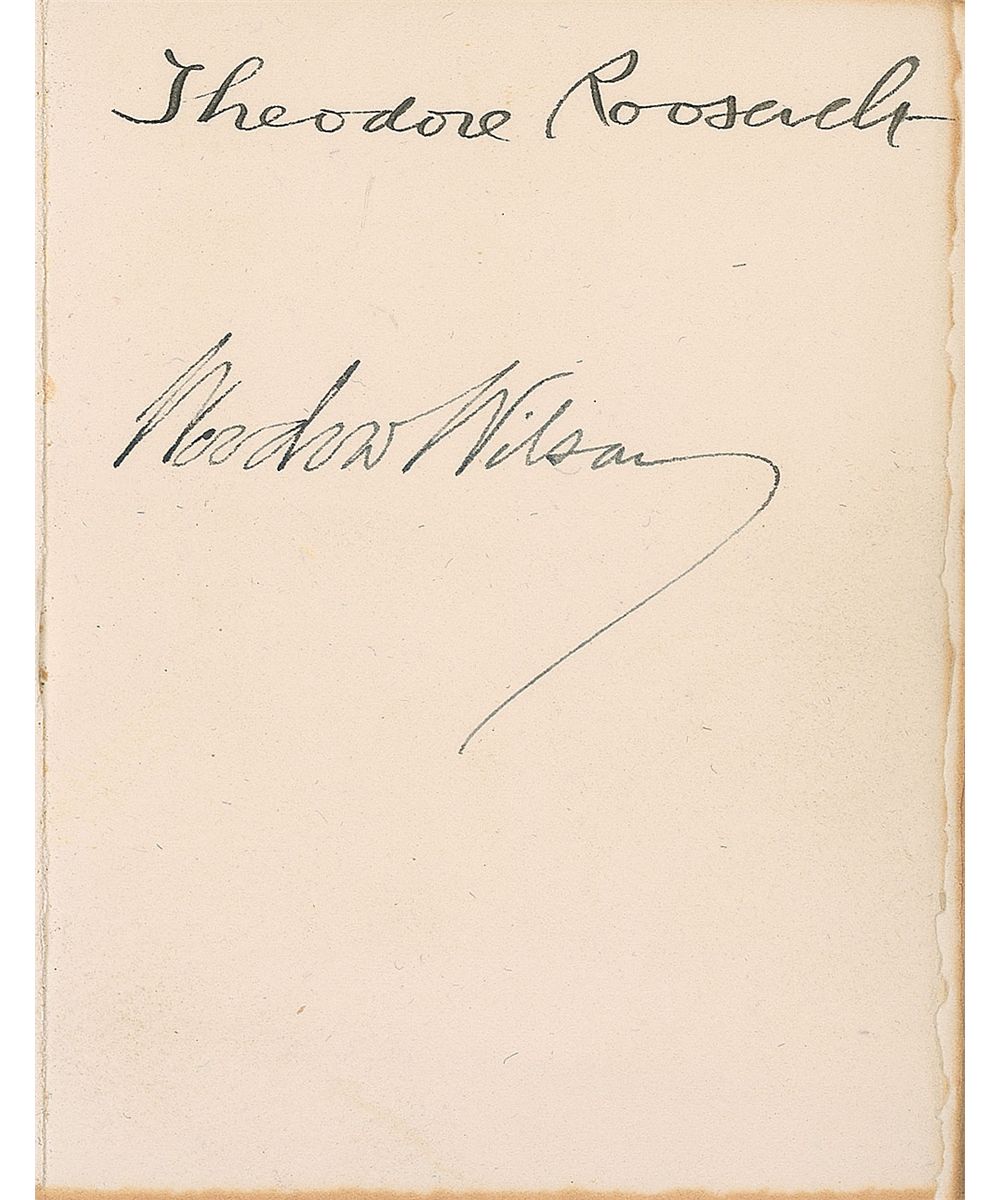 Theodore Roosevelt
Woodrow Wilson